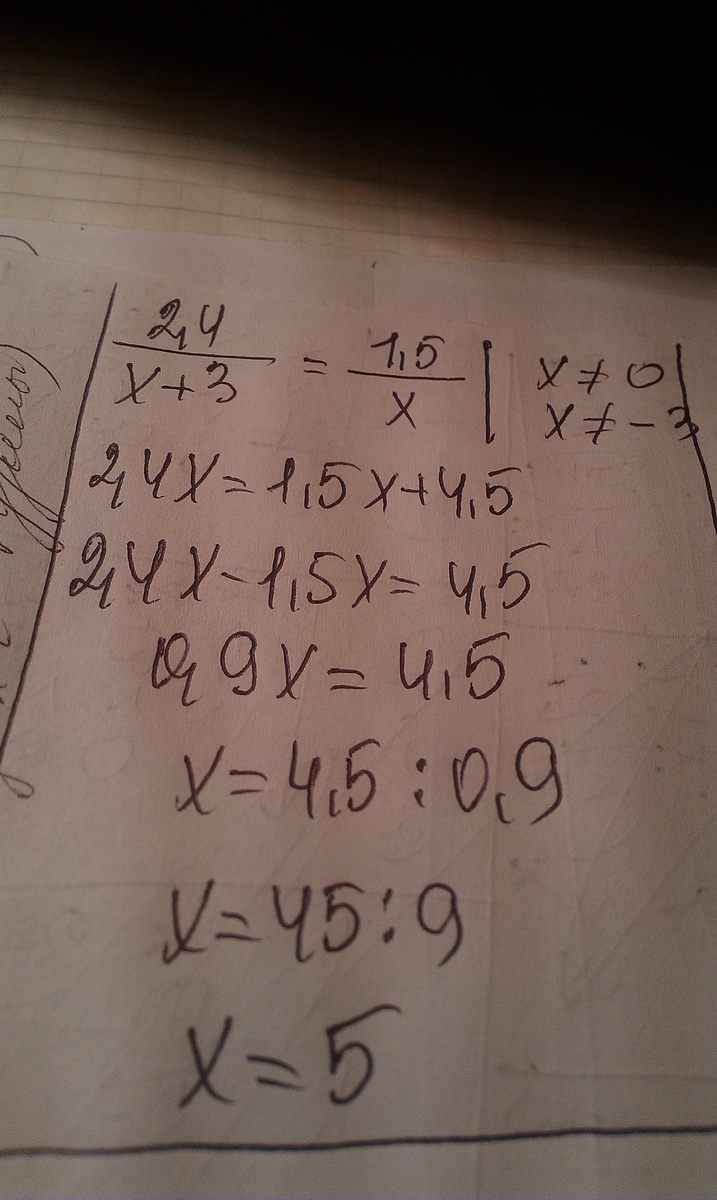 2,4/(x+3) = 1,5/x | x ≠ 0
x ≠ -3
2,4x = 1,5x + 4,5
2,4x - 1,5x = 4,5
0,9x = 4,5
x = 4,5 : 0,9
x = 45 : 9
x = 5